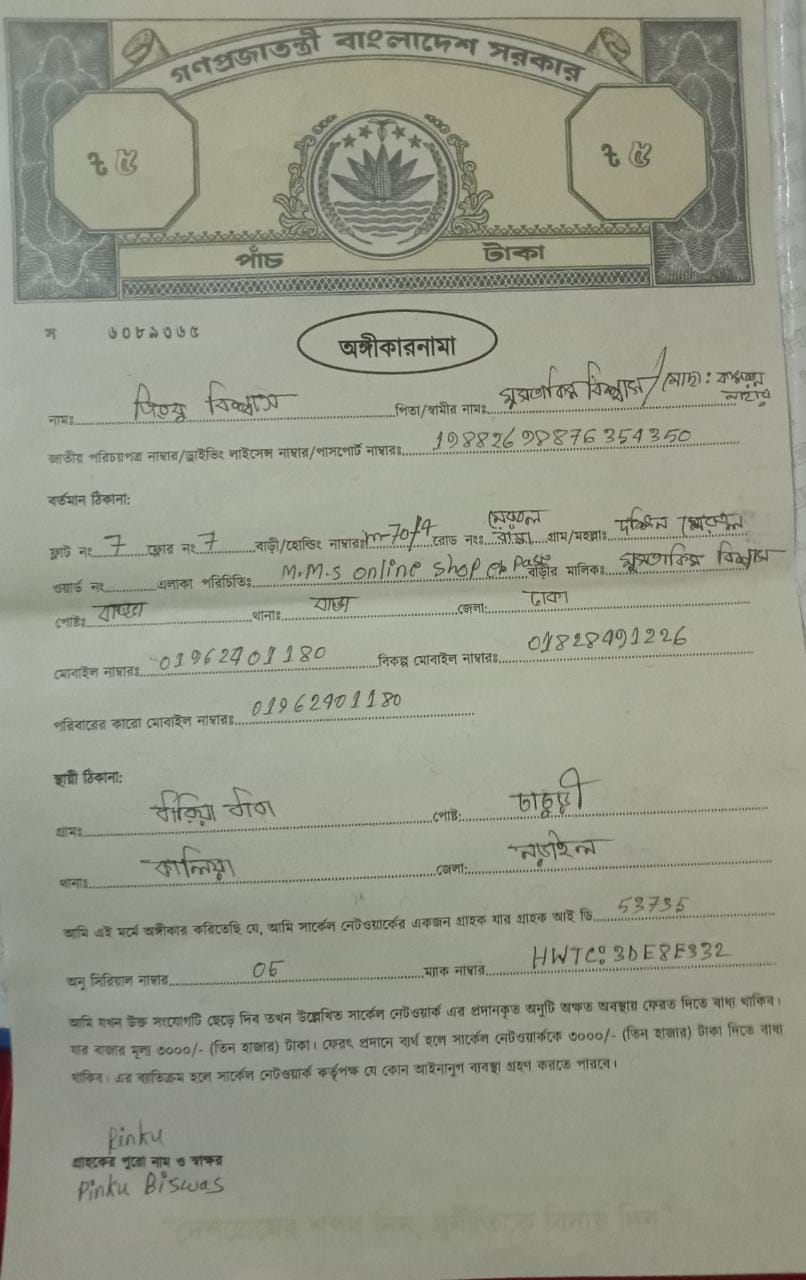 গণপ্রজাতন্ত্রী বাংলাদেশ সরকার
৳ ৫ ৳ ৫
পাঁচ টাকা
স ৬০৮৯৩৬৫
অঙ্গীকারনামা
নামঃ পিংকু বিশ্বাস পিতা/স্বামীর নামঃ মুসতাকিন বিশ্বাস/(মাতা):
নাহার
জাতীয় পরিচয়পত্র নাম্বার/ড্রাইভিং লাইসেন্স নাম্বার/পাসপোর্ট নাম্বারঃ 19882698876354350
বর্তমান ঠিকানা:
ফ্লাট নং 7 ফ্লোর নং 7 বাড়ী/হোল্ডিং নাম্বারঃ m-70/4 রোড নংঃ গ্রাম/মহল্লাঃ দক্ষিন
ওয়ার্ড নং এলাকা পরিচিতিঃ M.M.s online shop বাড়ীর মালিকঃ মুসতাকিন বিশ্বাস
পোষ্টঃ বাড্ডা থানাঃ বাড্ডা জেলা: ঢাকা
মোবাইল নাম্বারঃ 01962401180 বিকল্প মোবাইল নাম্বারঃ 01828491226
পরিবারের কারো মোবাইল নাম্বারঃ 01962401180
স্থায়ী ঠিকানা:
গ্রামঃ পোষ্ট: চাচুড়ী
থানাঃ কালিয়া জেলা: নড়াইল
আমি এই মর্মে অঙ্গীকার করিতেছি যে, আমি সার্কেল নেটওয়ার্কের একজন গ্রাহক যার গ্রাহক আই ডি 53735
অনু সিরিয়াল নাম্বার 05 ম্যাক নাম্বার HWTC: 3DE8E332
আমি যখন উক্ত সংযোগটি ছেড়ে দিব তখন উল্লেখিত সার্কেল নেটওয়ার্ক এর প্রদানকৃত অনুটি অক্ষত অবস্থায় ফেরত দিতে বাধ্য থাকিব।
যার বাজার মূল্য ৩০০০/- (তিন হাজার) টাকা। ফেরৎ প্রদানে ব্যর্থ হলে সার্কেল নেটওয়ার্ককে ৩০০০/- (তিন হাজার) টাকা দিতে বাধ্য
থাকিব। এর ব্যতিক্রম হলে সার্কেল নেটওয়ার্ক কর্তৃপক্ষ যে কোন আইনানুগ ব্যবস্থা গ্রহণ করতে পারবে।
Pinku
গ্রাহকের পুরো নাম ও স্বাক্ষর
Pinku Biswas
"দেশপ্রেমের শপথ নিন, দুর্নীতিকে বিদায় দিন"